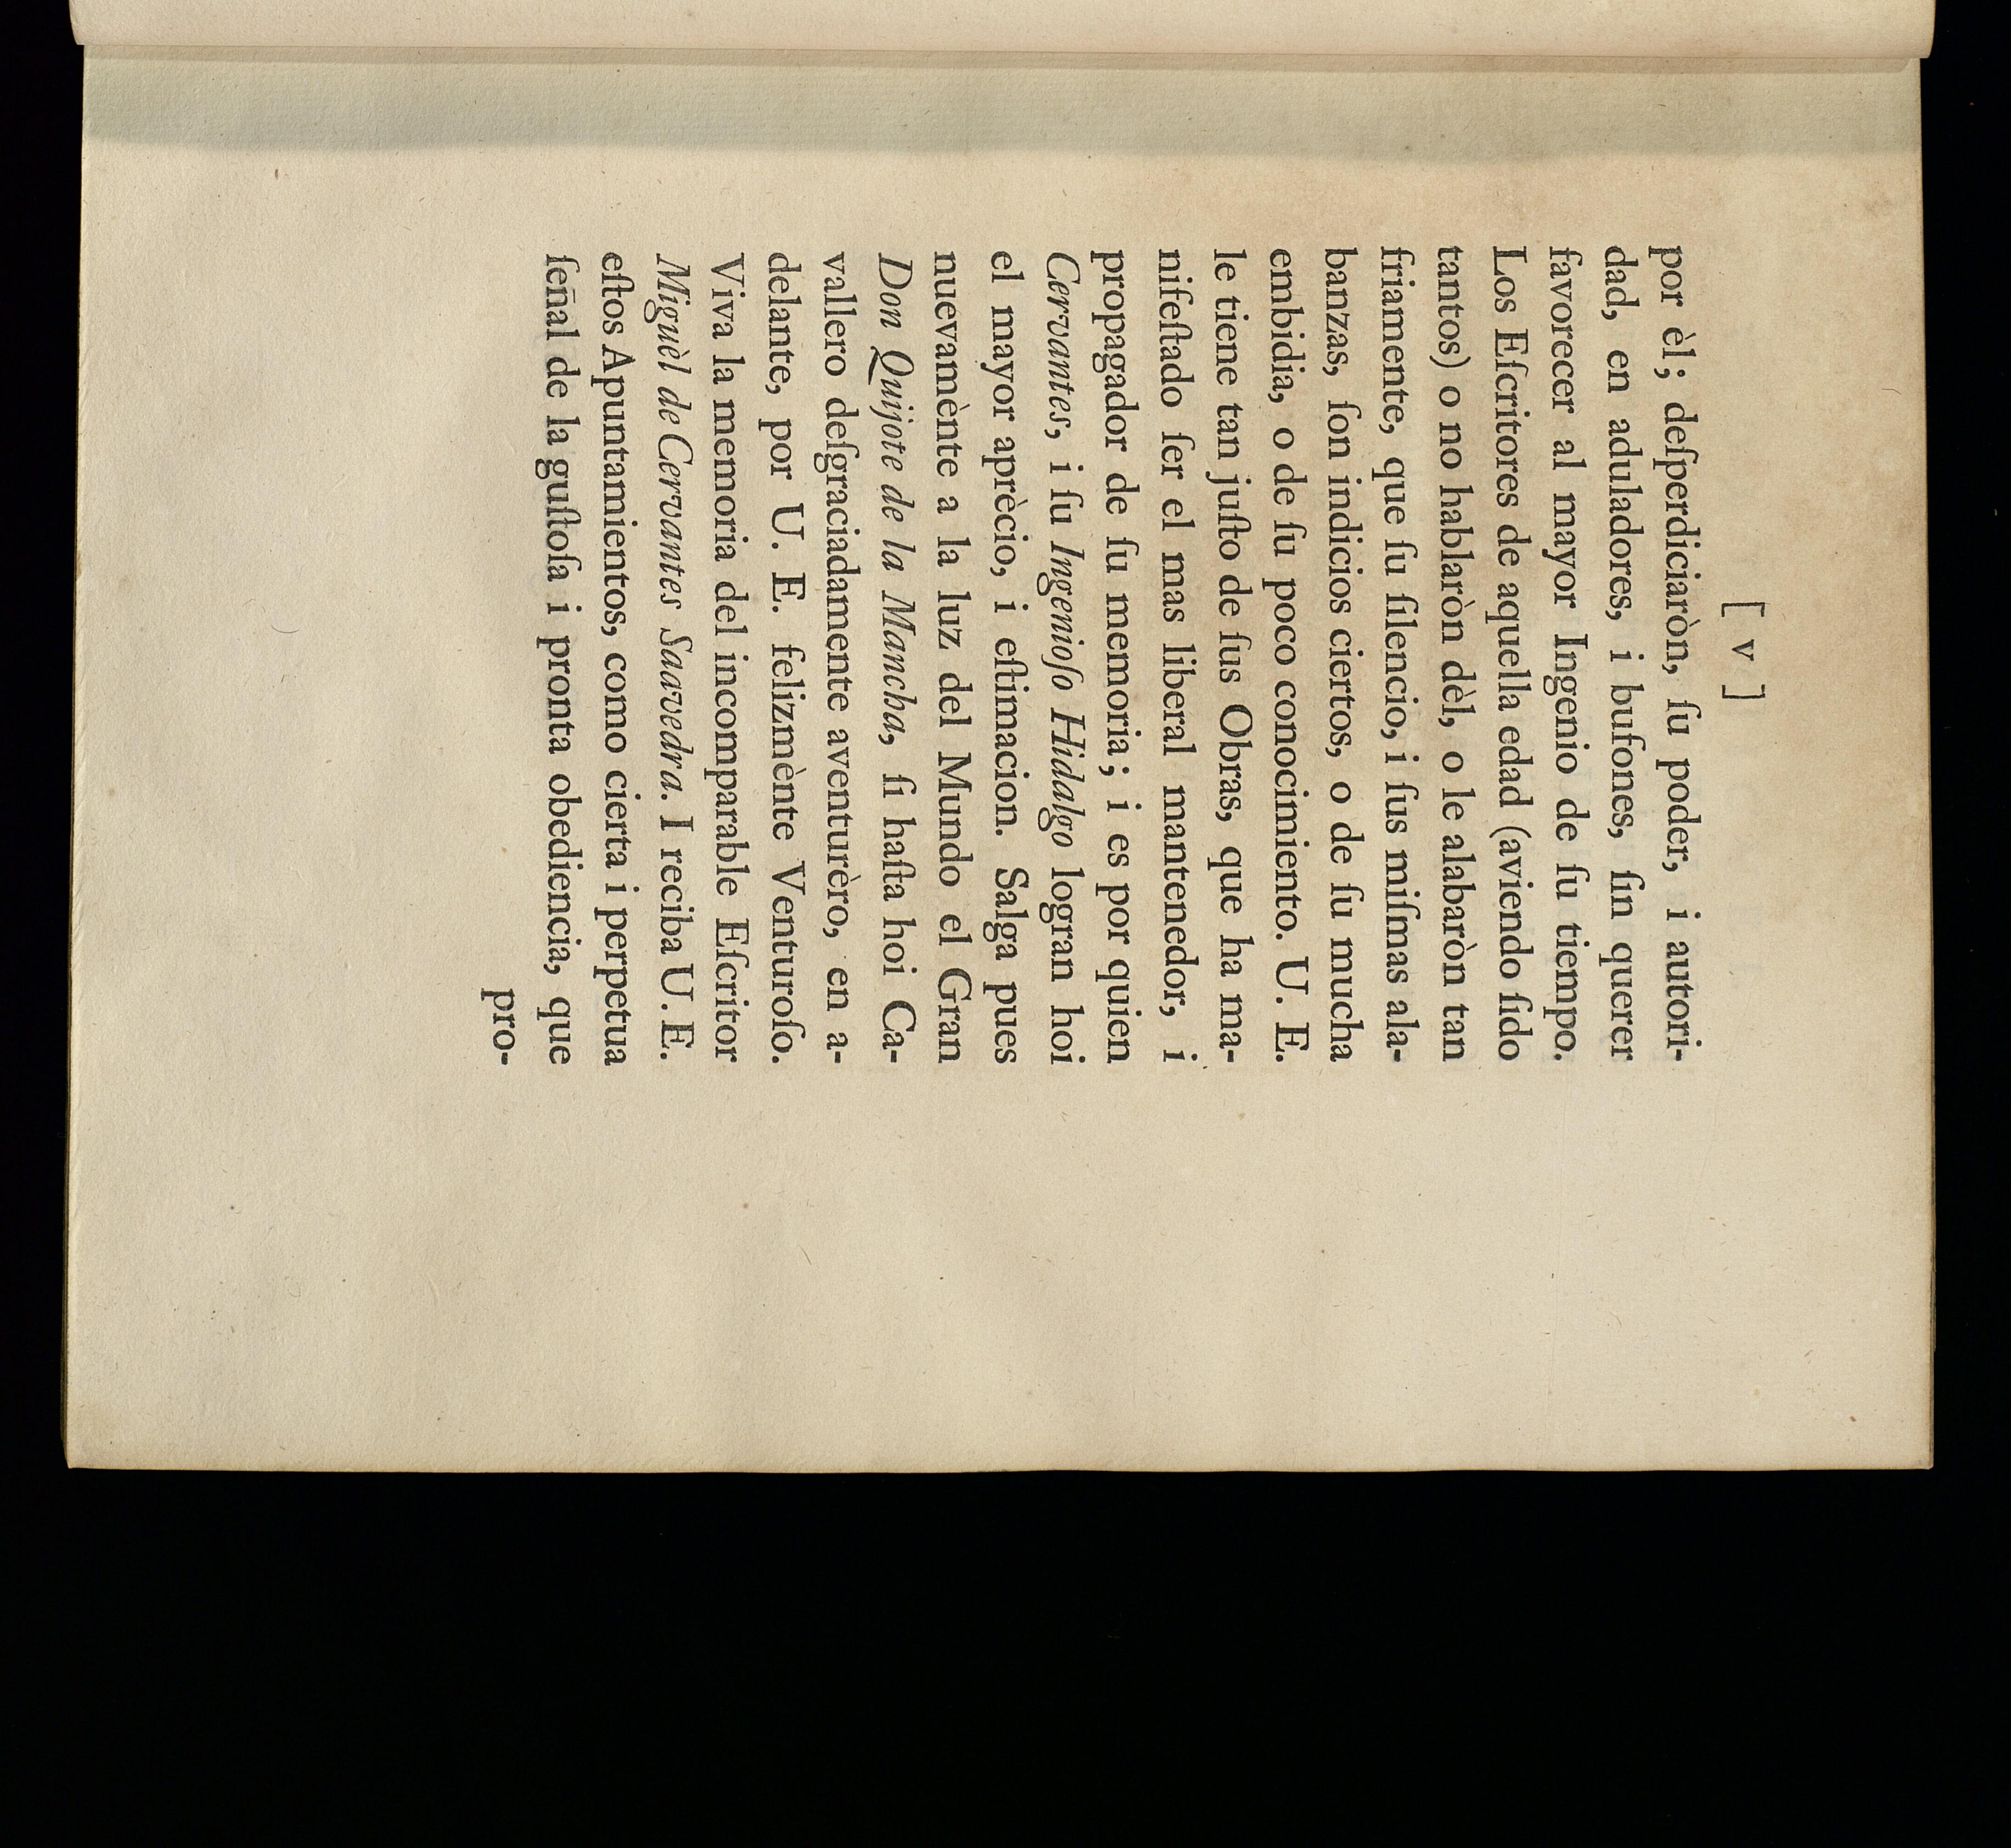 [ v ]
por èl; deſperdiciaròn, ſu poder, i autori-
dad, en aduladores, i bufones, ſin querer
favorecer al mayor Ingenio de ſu tiempo.
Los Eſcritores de aquella edad (aviendo ſido
tantos) o no hablaròn dèl, o le alabaròn tan
friamente, que ſu ſilencio, i ſus miſmas ala-
banzas, ſon indicios ciertos, o de ſu mucha
embidia, o de ſu poco conocimiento. U. E.
le tiene tan juſto de ſus Obras, que ha ma-
nifeſtado ſer el mas liberal mantenedor, i
propagador de ſu memoria; i es por quien
Cervantes, i ſu Ingenioſo Hidalgo logran hoi
el mayor aprècio, i eſtimacion. Salga pues
nuevamènte a la luz del Mundo el Gran
Don Quijote de la Mancha, ſi haſta hoi Ca-
vallero deſgraciadamente aventurèro, en a-
delante, por U. E. felizmènte Venturoſo.
Viva la memoria del incomparable Eſcritor
Miguèl de Cervantes Saavedra. I reciba U. E.
eſtos Apuntamientos, como cierta i perpetua
ſeñal de la guſtoſa i pronta obediencia, que
pro-